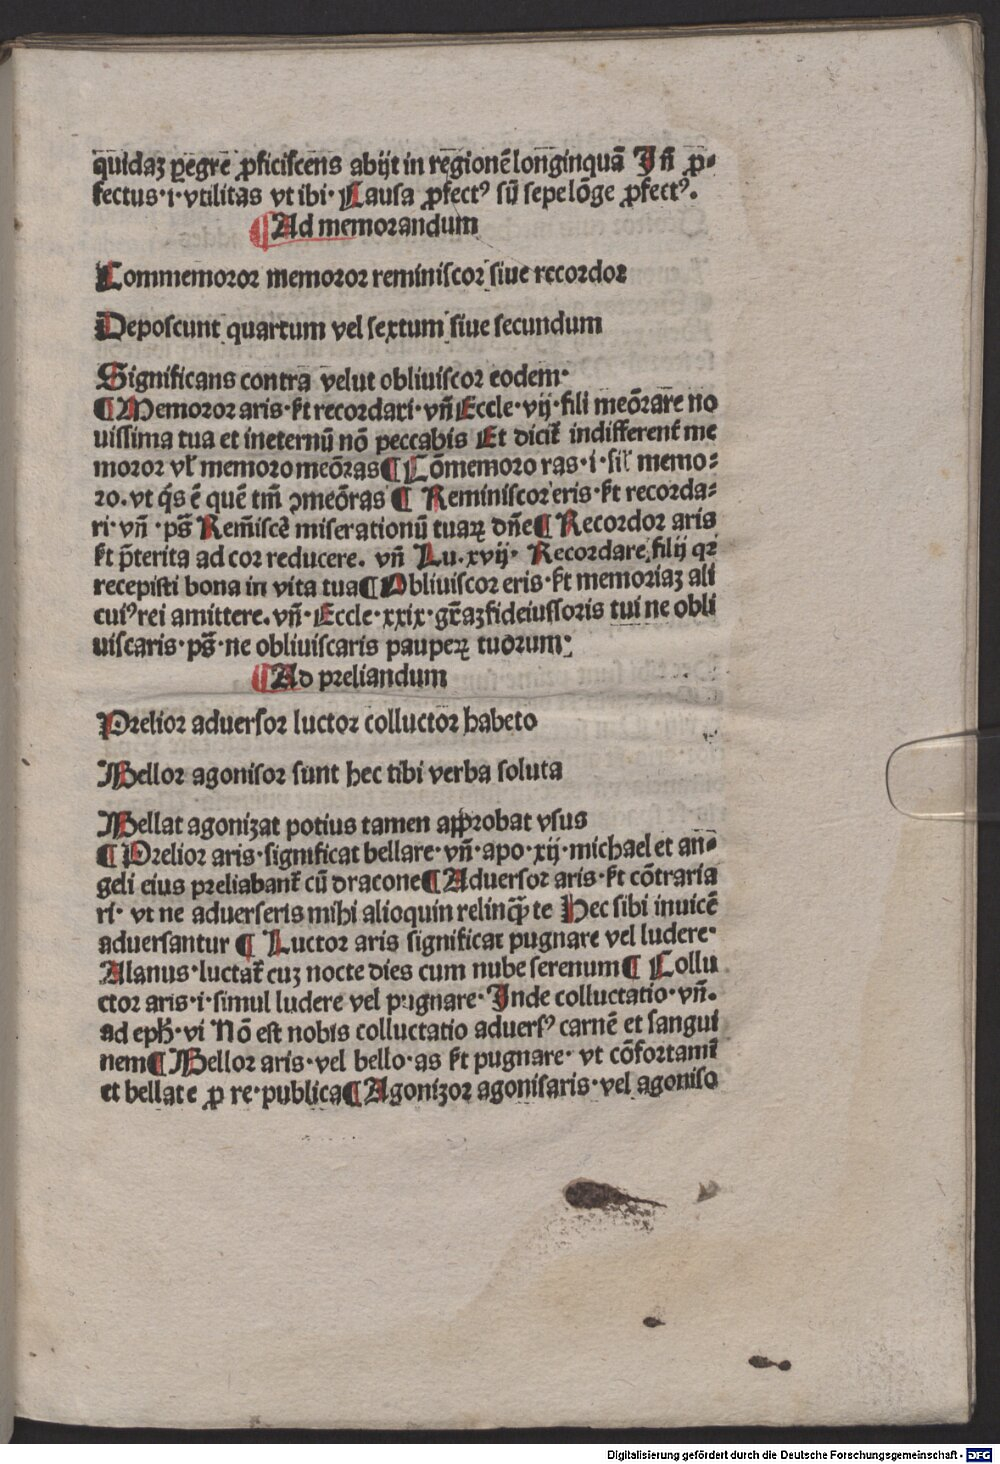 quidaꝫ ꝑegre ꝓficiscens abijt in regionē longinquā Jn̄ ꝓ-
fectus·i·vtilitas vt ibi· Causa ꝓfectꝰ sū sepe lōge ꝓfectꝰ.
¶Ad memorandum
Commemoror memoror reminiscor siue recordor
Deposcunt quartum vel sextum siue secundum
Significans contra velut obliuiscor eodem·
¶Memoror aris·ſt recordari·vn̄ Eccle·vij·fili meōrare no
uissima tua et ineternū nō peccabis Et dicit̄ indifferent̄ me
moror vl̄ memoro meōras¶Cōmemoro ras·i·sil̄ memo-
ro.vt q̇s ē quē tm̄ ꝯmeōras¶ Reminiscor eris·ſt recorda-
ri·vn̄ ·ps̄ Rem̄iscē miserationū tuaꝝ dn̄e¶Recordor aris
ſt p̄terita ad cor reducere. vn̄ Lu.xvij· Recordare filij qꝛ
recepisti bona in vita tua¶Obliuiscor eris·ſt memoriaꝫ ali
cuiꝰ rei amittere.vn̄·Eccle·xxix·gr̄aꝫ fideiussoris tui ne obli
uiscaris·ps̄·ne obliuiscaris pauperꝝ tuorum·
¶Ad preliandum
Prelior aduersor luctor colluctor habeto
Bellor agonisor sunt hec tibi verba soluta
Bellat agonizat potius tamen approbat vsus
¶Prelior aris·significat bellare·vn̄·apo·xij·michael et an-
geli eius preliabant̄ cū dracone¶Aduersor aris·ſt cōtraria
ri· vt ne aduerseris mihi alioquin relinq̄ te Hec sibi inuicē
aduersantur¶ Luctor aris significat pugnare vel ludere·
Alanus·luctat̄ cuꝫ nocte dies cum nube serenum¶ Collu
ctor aris·i·simul ludere vel pugnare·Inde colluctatio·vn̄.
ad eph̄·vi Nō est nobis colluctatio aduersꝰ carnē et sangui
nem¶Bellor aris·vel bello·as ſt pugnare· vt cōfortamī
et bellate ꝓ re·publica¶Agonizor agonisaris·vel agoniso
Digitalisierung gefördert durch die Deutsche Forschungsgemeinschaft - DFG